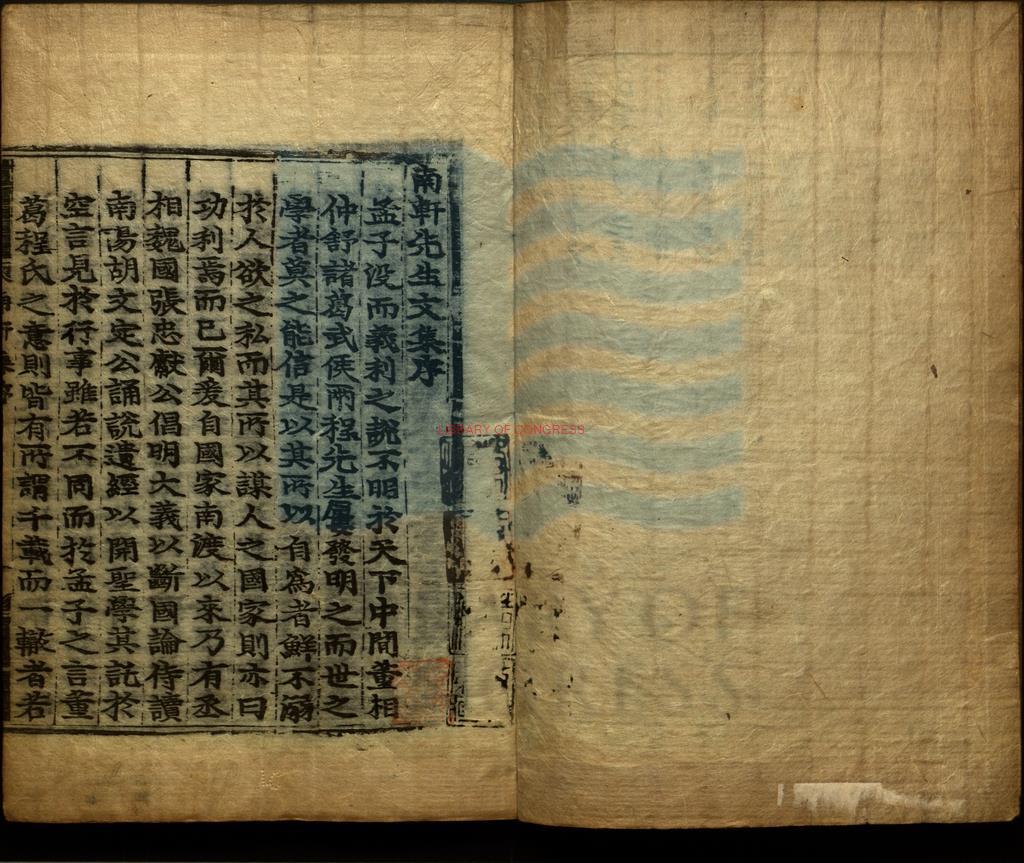 南軒先生文集序
孟子没而義利之說不明於天下中間董相
仲舒諸葛武侯兩程先生屢發明之而世之
學者莫之能信是以其所以自為者鮮不溺
於人欲之私而其所以謀人之國家則亦曰
功利焉而已爾爰自國家南渡以來乃有丞
相魏國張忠獻公倡明大義以斷國論侍讀
南陽胡文定公誦說遺經以開聖學其託於
空言見於行事雖若不同而於孟子之言董
葛程氏之意則皆有所謂千載而一轍者若
LIBRARY OF CONGRESS